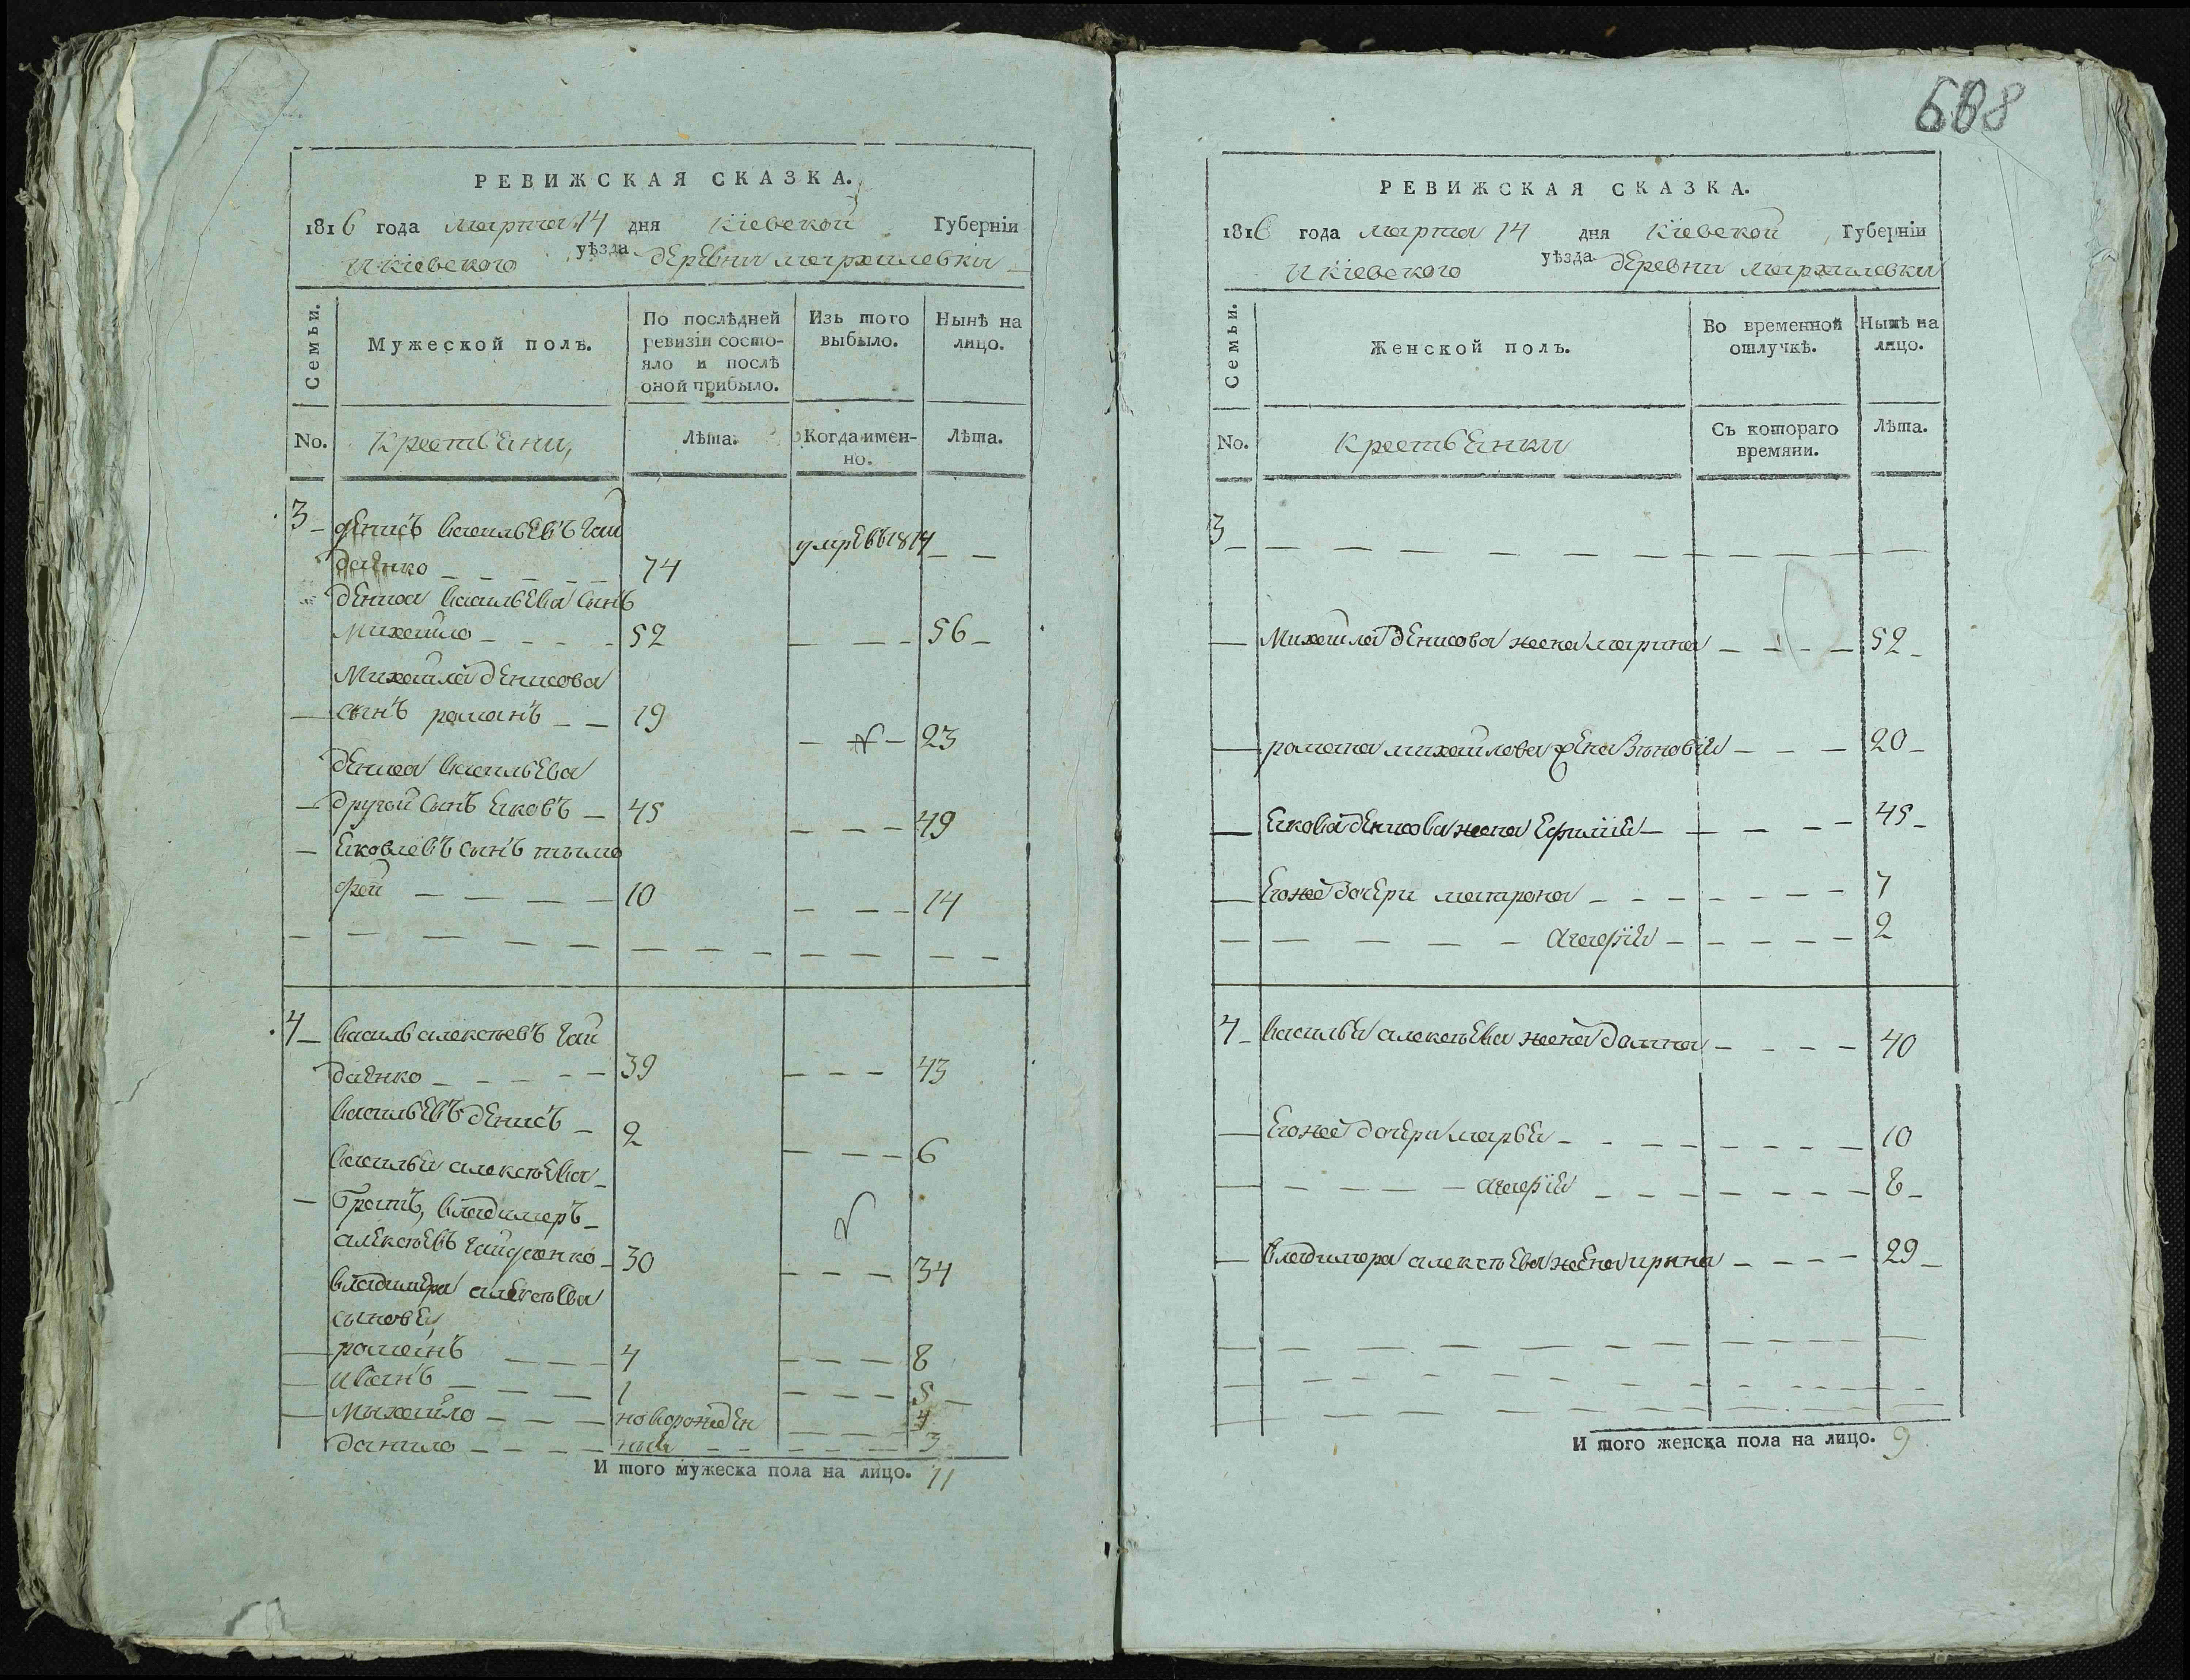 РЕВИЖСКАЯ СКАЗКА.
1816 года марта 14 дня Кіевской Губерніи
И кіевского уѣзда деревни мархалевки
Семьи.
Мужеской полъ.
По послѣдней ревизіи состояло и послѣ оной прибыло.
Изъ того выбыло.
Нынѣ на лицо.
No.
Крестьяни,
Лѣта.
Когда имен-
но.
Лѣта.
3 денисъ васильевъ гай
даенко 74 умре въ 1814
дениса васильева сынъ
Михайло 52 56
Михайла денисова
сынъ романъ 19 23
дениса васильева
другой сынъ яковъ 45 49
яковлевъ сынъ тымо
фей 10 14
4 василь алексѣевъ гай
даенко 39 43
васильевъ денисъ 2 6
василья алексѣева
братъ, владимеръ
алексѣевъ гайдаенко 30 34
владимера алексѣева
сыновья
романъ 4 8
иванъ 1 5
мыхайло новорожден 4
данило ныи 3
И того мужеска пола на лицо. 11
608
РЕВИЖСКАЯ СКАЗКА.
1816 года марта 14 дня Кіевской Губерніи
И кіевского уѣзда деревни мархалевки
Семьи.
Женской полъ.
Во временной отлучкѣ.
Нынѣ на лицо.
No.
Крестьянки
Съ котораго времяни.
Лѣта.
3
Михайла денисова жена марина 52
романа михайлова жена зѣновія 20
якова денисова жена Ефимія 45
Егожѣ дочери матрона 7
Агафія 2
4 василья алексѣева жена домна 40
Егожѣ дочери марья 10
агафія 8
владимера алексѣева жена ирина 29
И того женска пола на лицо. 9